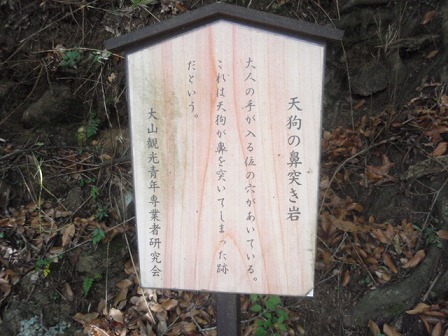 天狗の鼻突き岩
大人の手が入る位の穴があいている。
これは天狗が鼻を突いてしまった跡
だという。
大山観光青年専業者研究会